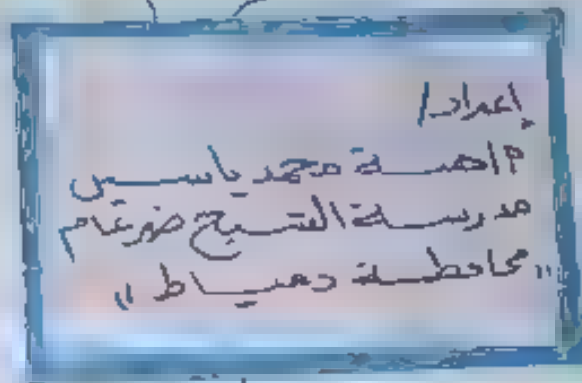 إعداد/
م/همسة محمد ياسين
مدرسة الشيخ ضرغام
"محافظة دمياط"